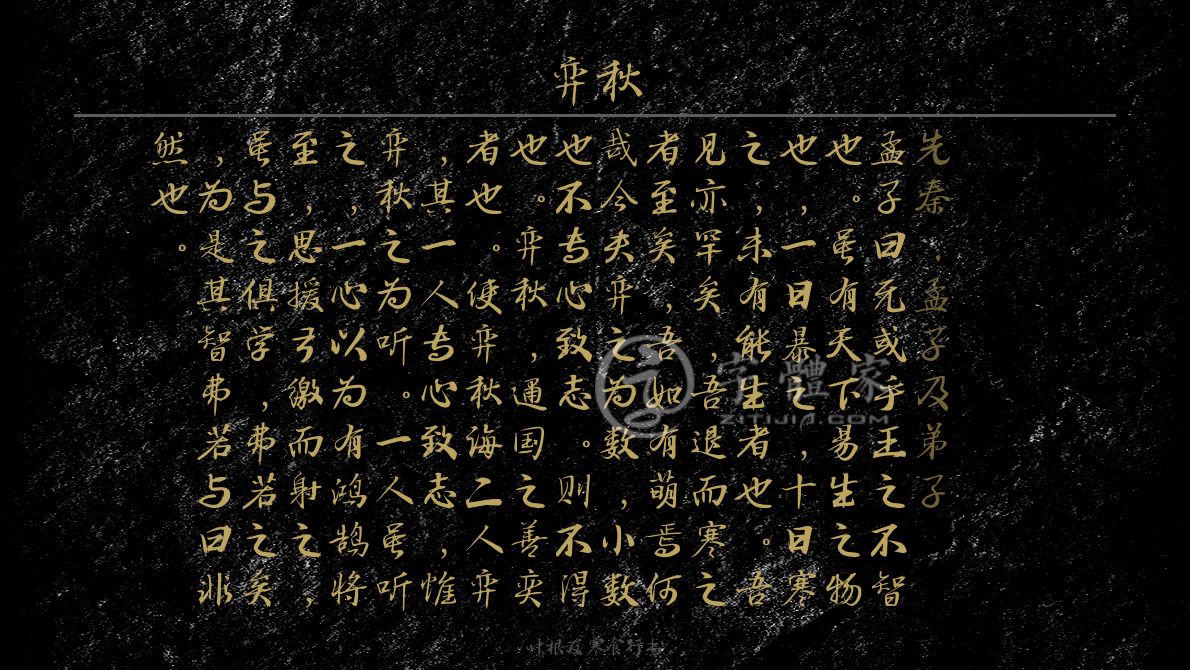 弈秋
先秦：孟子及弟子
孟子曰无或乎王之不智
也。虽有天下易生之物
也，一日暴之，十日寒
之，未有能生者也。吾
见亦罕矣，吾退而寒之
者至矣，吾如有萌焉何
哉今夫弈之为数，小数
也不专心致志。则不得
也。弈秋，通国之善奕
者也。使弈秋诲二人弈
，其一人专心致志，惟
弈秋之为听。一人虽听
之，一心以为有鸿鹄将
至，思援弓缴而射之，
虽与之俱学，弗若之矣
，为是其智弗若与曰非
然也。
字體家
ZITIJIA.COM
叶根友寒食行书